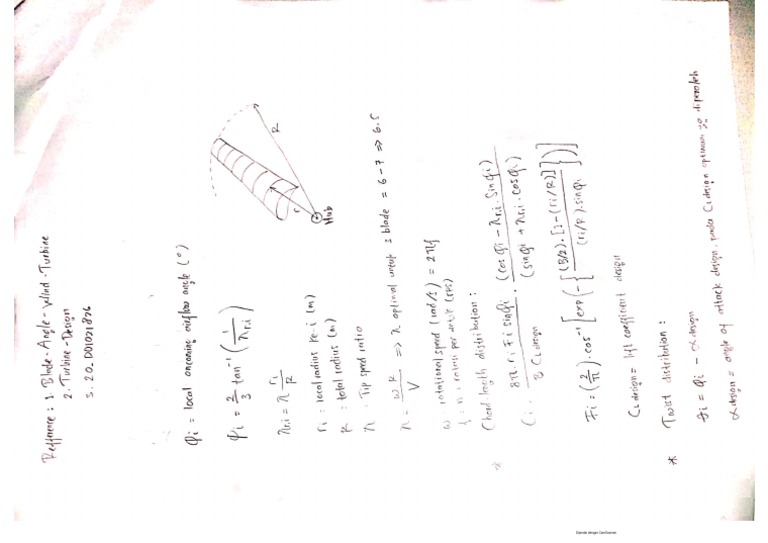 Refference : 1. Blade-Angle-Wind-Turbine
2. Turbine-Design
3. 20.001021826
φi = local oncoming airflow angle (°)
φi = 2/3 tan⁻¹ (1/λr,i)
λr,i = λ ri/R
ri : local radius ke-i (m)
R : total radius (m)
λ : Tip speed ratio
λ = ω.R/V => λ optimal untuk 3 blade = 6-7 => 6.5
ω = rotational speed (rad/s) = 2πf
f : n : rotasi per detik (rps)
R
r
Hub
* Chord length distribution :
Ci = 8π.ri Fi sinφi / B CL design . (cosφi - λr,i . sinφi) / (sinφi + λr,i . cosφi)
Fi = (2/π) . cos⁻¹ [exp (-{ (B/2) . [1-(ri/R)] / (ri/R) . sinφi })]
CL design = lift coefficient design
* Twist distribution :
= φi - α design
α design = angle of attack design, pada CL design optimum diperoleh
Dipindai dengan CamScanner